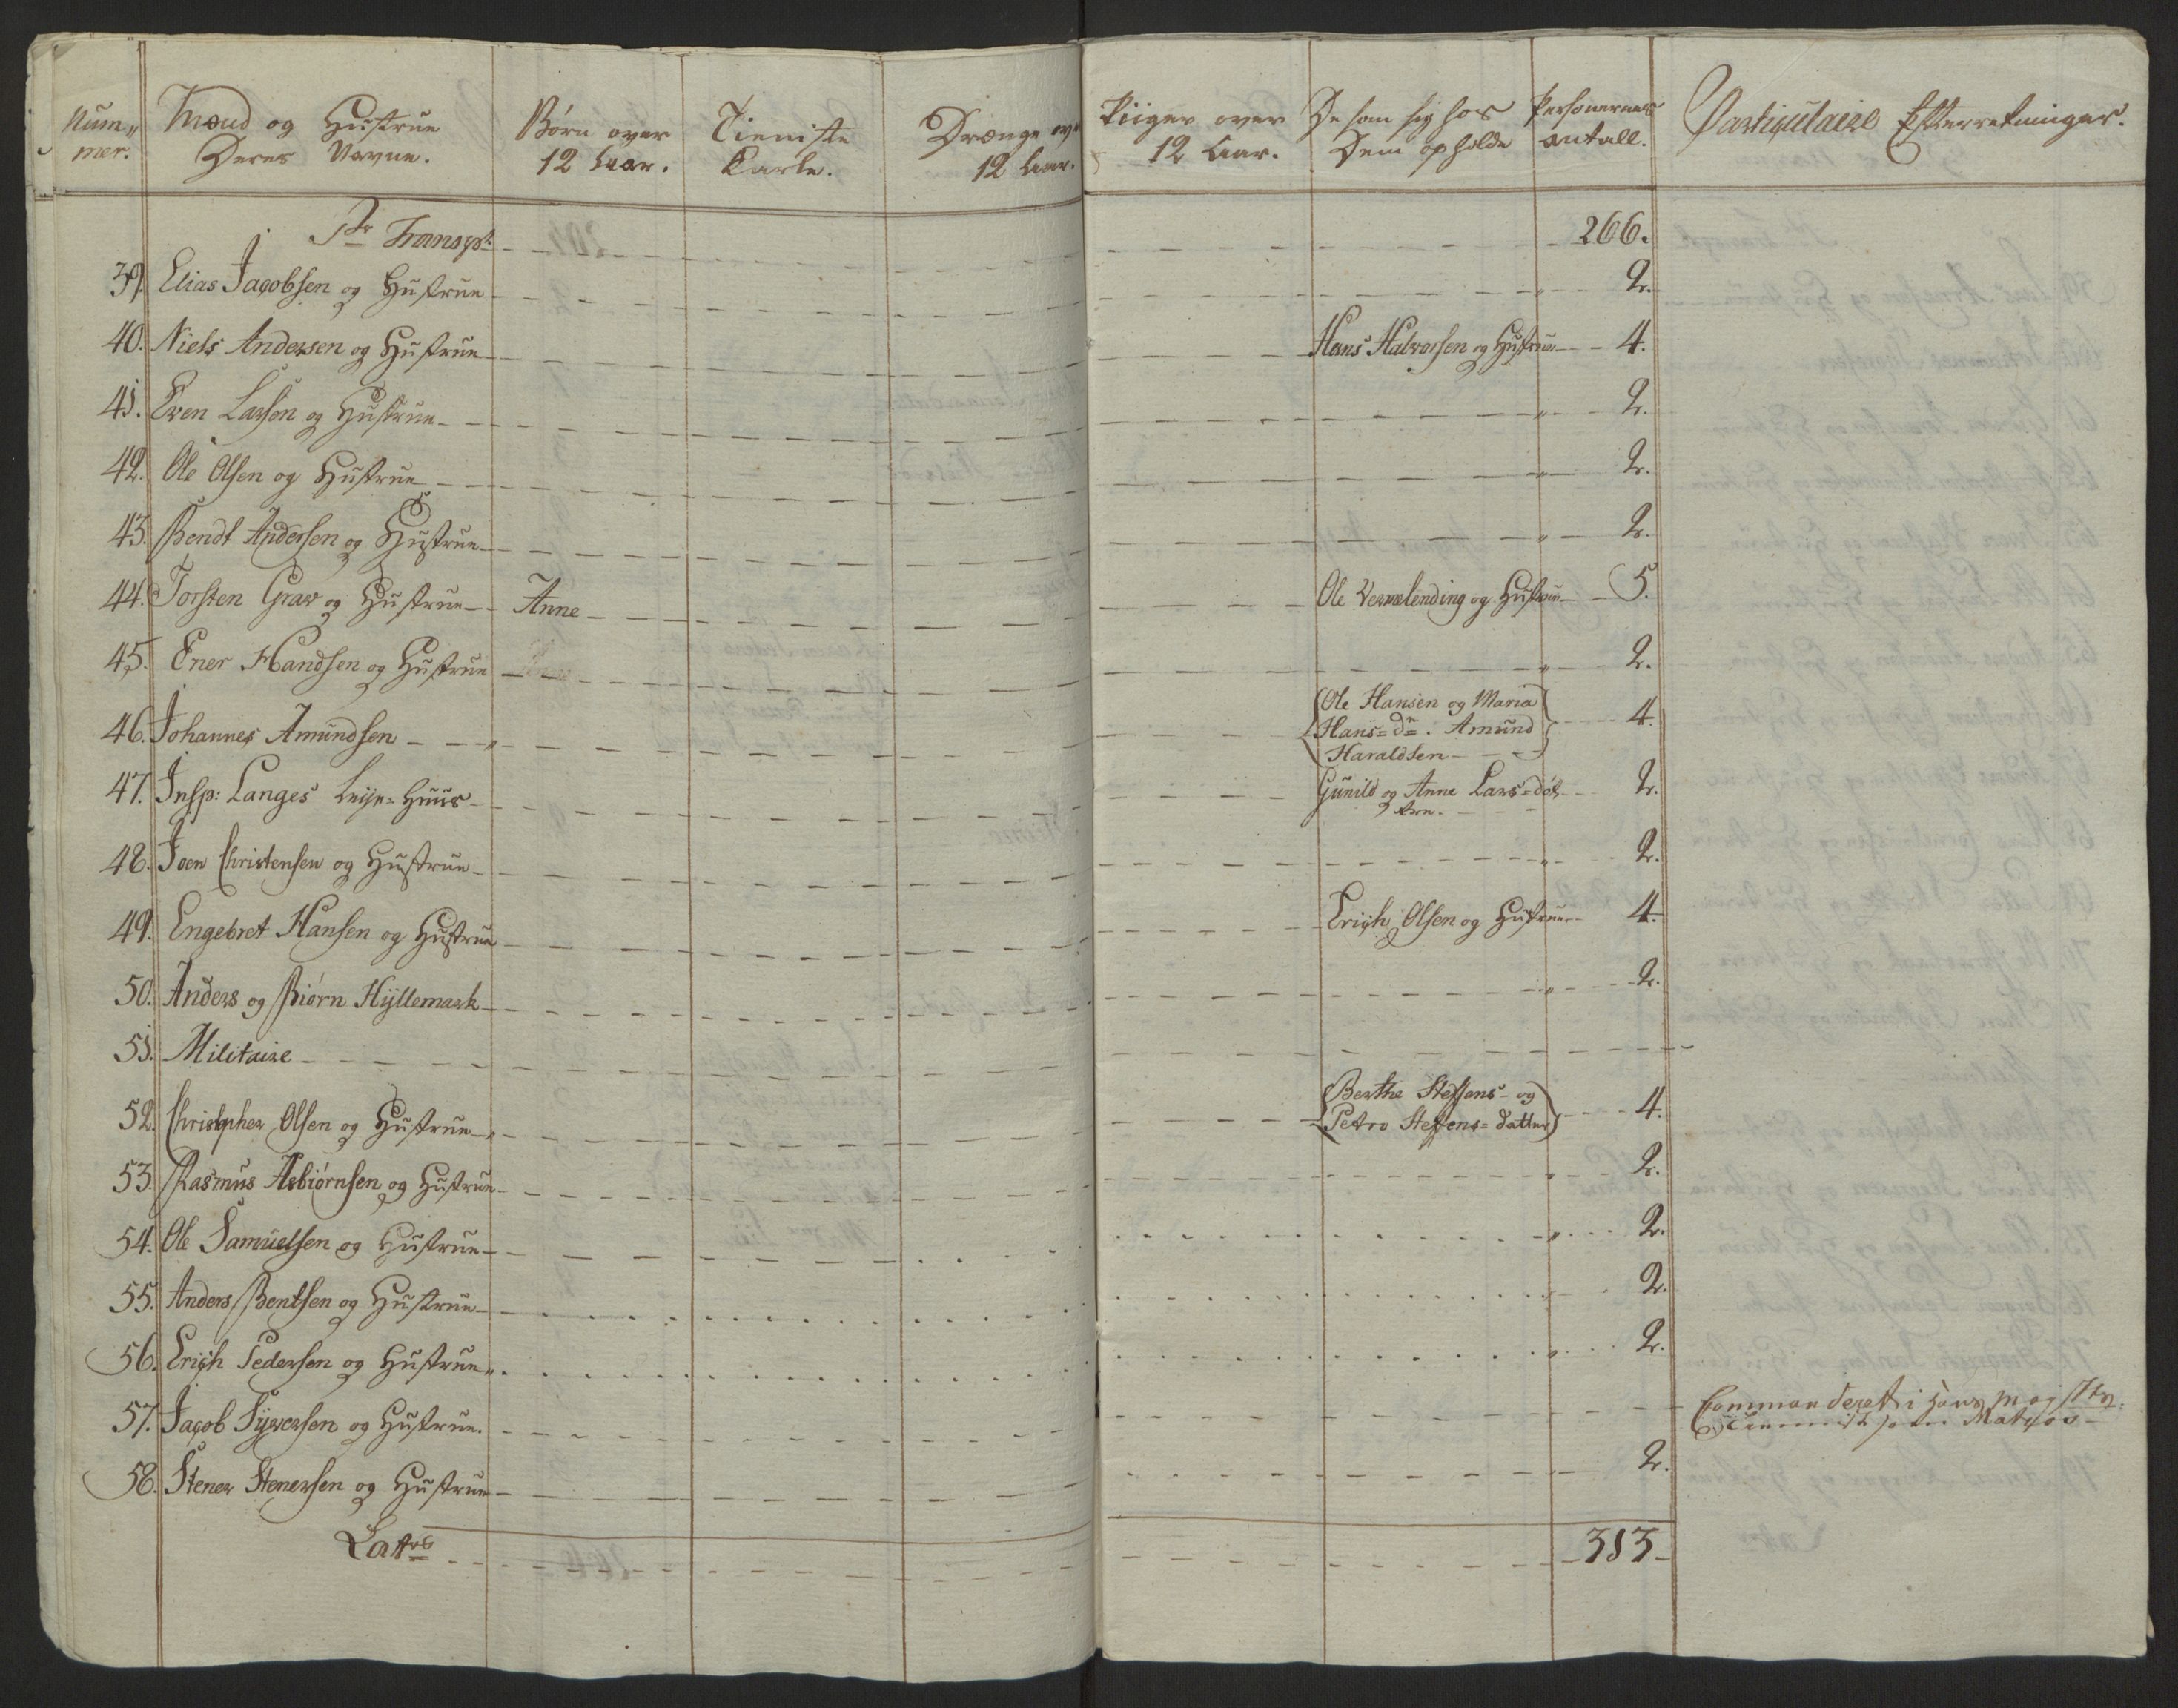 Num„ mer. Mænd og Hustrue Deres Navne. Børn over 12 Aar. Tieniste Karle. Drænge ov 12 Aar. Piiger over 12 Aar. De som sig hos Dem opholde Personernes antall. Partiqulaire Efterretninger.
Pr Transpt 266.
39. Elias Jacobsen og Hustrue 2.
40. Niels Andersen og Hustrue Hans Halvorsen og Hustrue 4.
41. Even Larsen og Hustrue 2.
42. Ole Olsen og Hustrue 2.
43. Bendt Andersen og Hustrue 2.
44. Torsten Graver og Hustrue Anne Ole Vermelending og Hustrue 5.
45. Ener Handsen og Hustrue 2.
46. Johannes Amundsen Ole Hansen og Maria Hans=dr. Amund Haraldsen 4.
47. Insp: Langes Leije=Huus Gunild og Anne Lars=døt tre. 2.
48. Joen Christensen og Hustrue 2.
49. Engebret Hansen og Hustrue Erich Olsen og Hustrue 4.
50. Anders og Biørn Hyllemark 2.
51. Militaire
52. Christopher Olsen og Hustrue Berthe Steffens- og Petro Steffens=datter 4.
53. Rasmus Asbiørnsen og Hustrue 2.
54. Ole Samuelsen og Hustrue 2.
55. Anders Bentsen og Hustrue 2.
56. Erich Pedersen og Hustrue 2.
57. Jacob Syversen og Hustrue. Commanderet i Hans Majsttz. Tienniste som Matros
58. Stener Stenersen og Hustrue 2.
Lattus 313